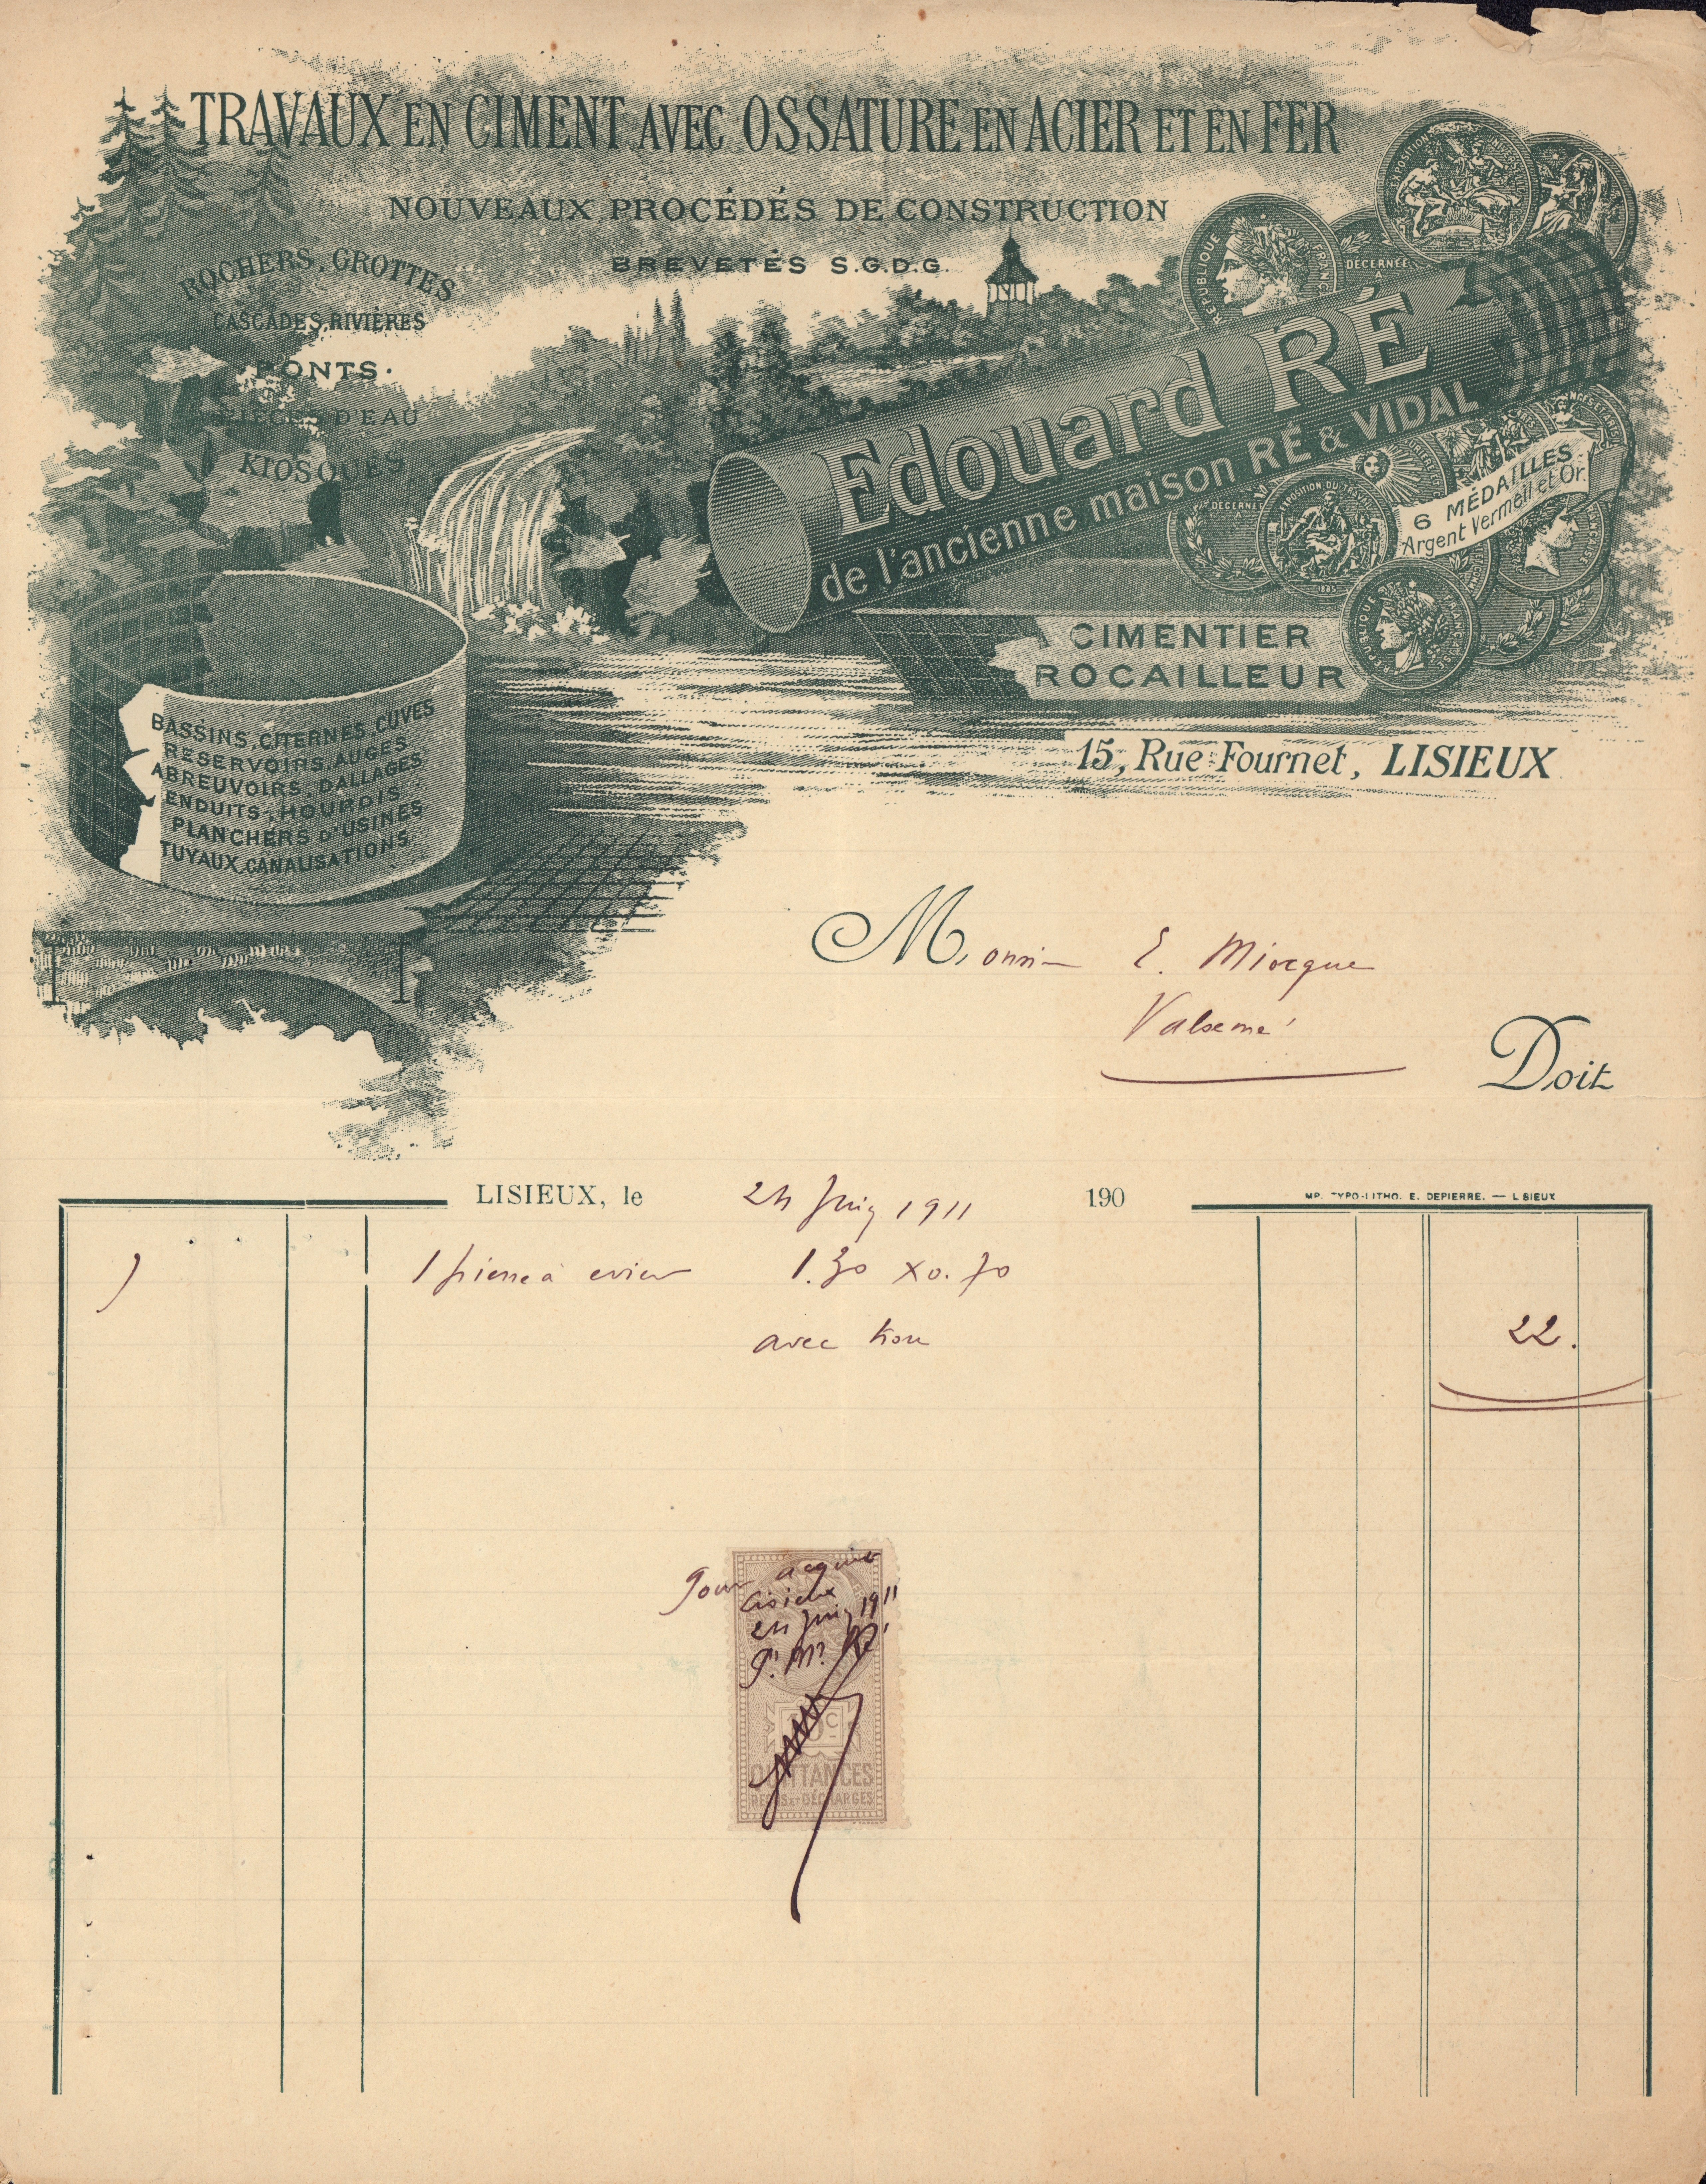 TRAVAUX EN CIMENT AVEC OSSATURE EN ACIER ET EN FER
NOUVEAUX PROCÉDÉS DE CONSTRUCTION
BREVETÉS S.G.D.G.
ROCHERS, GROTTES
CASCADES, RIVIÈRES
PONTS.
PIÈCES D'EAU
KIOSQUES
EXPOSITION UNIVERSELLE
RÉPUBLIQUE FRANÇ
DÉCERNÉE
A
Edouard RÉ
de l'ancienne maison RÉ & VIDAL
DECERNE
EXPOSITION DU TRAVAIL
1885
6 MÉDAILLES
Argent Vermeil et Or.
RÉPUBLIQUE FRANÇAISE
CIMENTIER
ROCAILLEUR
15, Rue Fournet, LISIEUX
BASSINS, CITERNES, CUVES
RÉSERVOIRS, AUGES,
ABREUVOIRS, DALLAGES
ENDUITS, HOURDIS,
PLANCHERS D'USINES
TUYAUX, CANALISATIONS.
Monsieur E. Miocque
Valsemé
Doit
LISIEUX, le 24 Juin 1911 190
MP. TYPO-LITHO. E. DEPIERRE. — LISIEUX
1 pierre à evier 1.30 x 0.70
avec trou 22.
Pour acquit
Lisieux
24 Juin 1911
Ré
10c
QUITTANCES
REÇUS ET DÉCHARGES